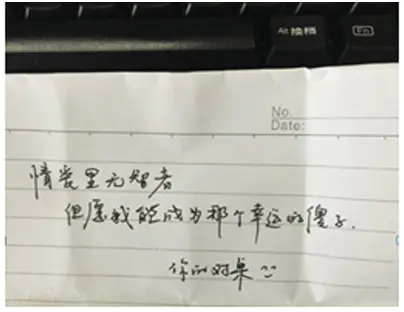 Alt 换档
Fn
No.
Date:
情丧里无智者
但愿我能成为那个幸运的傻子.
你的对桌